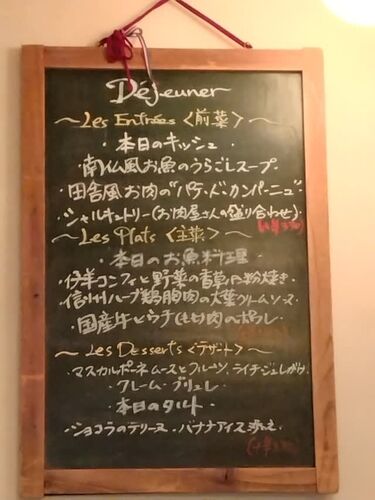 Déjeuner
～Les Entrées＜前菜＞～
・本日のキッシュ
・南仏風お魚のうらごしスープ
・田舎風お肉の"パテ・ド・カンパーニュ"
・シャルキュトリー(お肉屋さんの盛り合わせ)
～Les Plats＜主菜＞～
・本日のお魚料理
・仔羊コンフィと野菜の香草パン粉焼き
・信州ハーブ鶏胸肉の大葉クリームソース
・国産牛ウチ(もも)肉のポワレ
～Les Desserts＜デザート＞～
・マスカルポーネムースとフルーツ、ライチジュレがけ
・クレームブリュレ
・本日のタルト
・ショコラのテリーヌ・バナナアイス添え